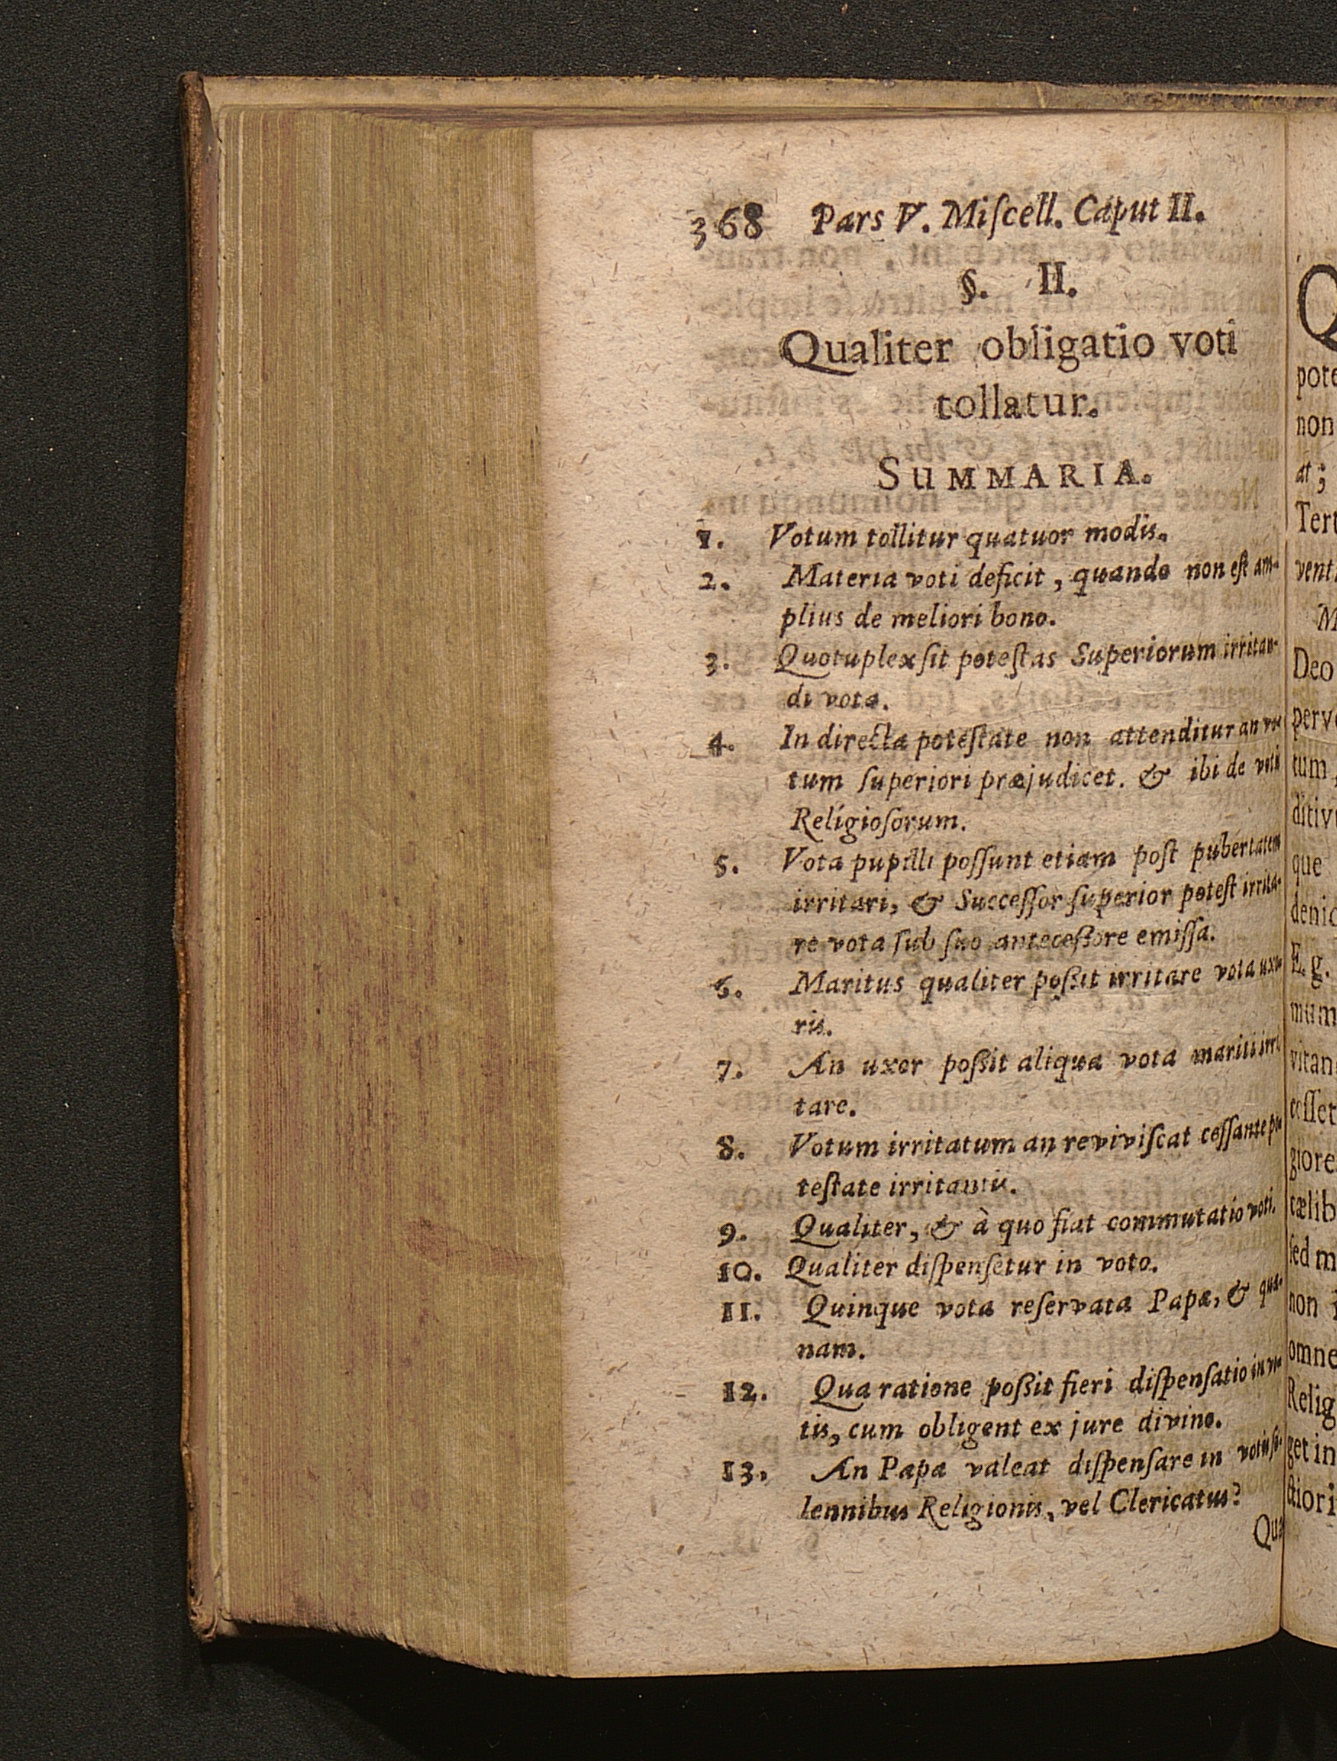 368 Pars V. Miſcell. Caput II.
§. II.
Qualiter obligatio voti
tollatur.
SUMMARIA.
1. Votum tollitur quatuor modis.
2. Materia voti deficit, quando non eſt am-
plius de meliori bono.
3. Quotuplex ſit poteſtas Superiorum irritan-
di vota.
4. In directa poteſtate non attenditur an vo-
tum ſuperiori præjudicet. & ibi de votis
Religioſorum.
5. Vota pupilli poſſunt etiam poſt pubertatem
irritari, & Succeſſor ſuperior poteſt irrita-
re vota ſub ſuo anteceſſore emiſſa.
6. Maritus qualiter poſſit irritare vota uxo-
ris.
7. An uxor poſſit aliqua vota mariti irri-
tare.
8. Votum irritatum an reviviſcat ceſſante po-
teſtate irritantis.
9. Qualiter, & à quo fiat commutatio voti.
10. Qualiter diſpenſetur in voto.
11. Quinque vota reſervata Papæ, & quæ-
nam.
12. Qua ratione poſſit fieri diſpenſatio in vo-
tis, cum obligent ex jure divino.
13. An Papa valeat diſpenſare in votis ſo-
lennibus Religionis, vel Clericatus?
Qua
Q
pote
non
at;
Tert
vent
M
Deo
perv
tum,
ditiv
que
denic
E.g.
mum
vitan
ceſſet
giore
cælib
ſed m
non
omne
Relig
get in
ctiori